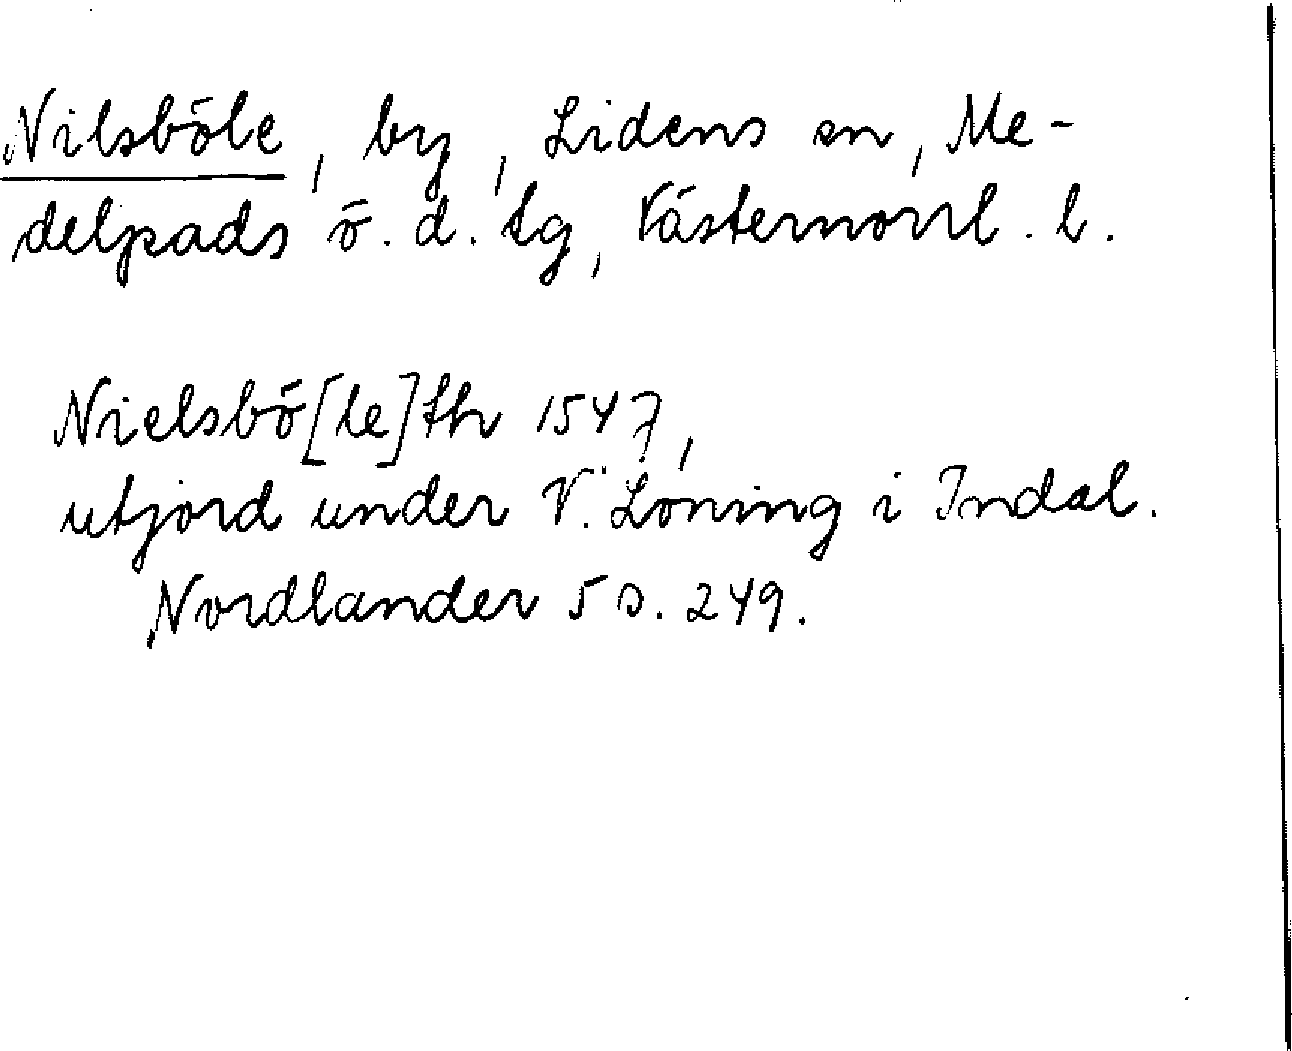 Nilsböle, by, Lidens sn, Me-
delpads ö. d. tg, Västernorrl. l.
Nielsbö[le]th 1547,
utjord under V. Löning i Indal.
Nordlander 5 s. 249.